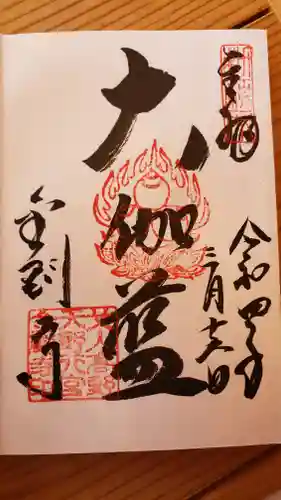 奉拝
令和四年
三月十六日
大伽藍
金剛寺